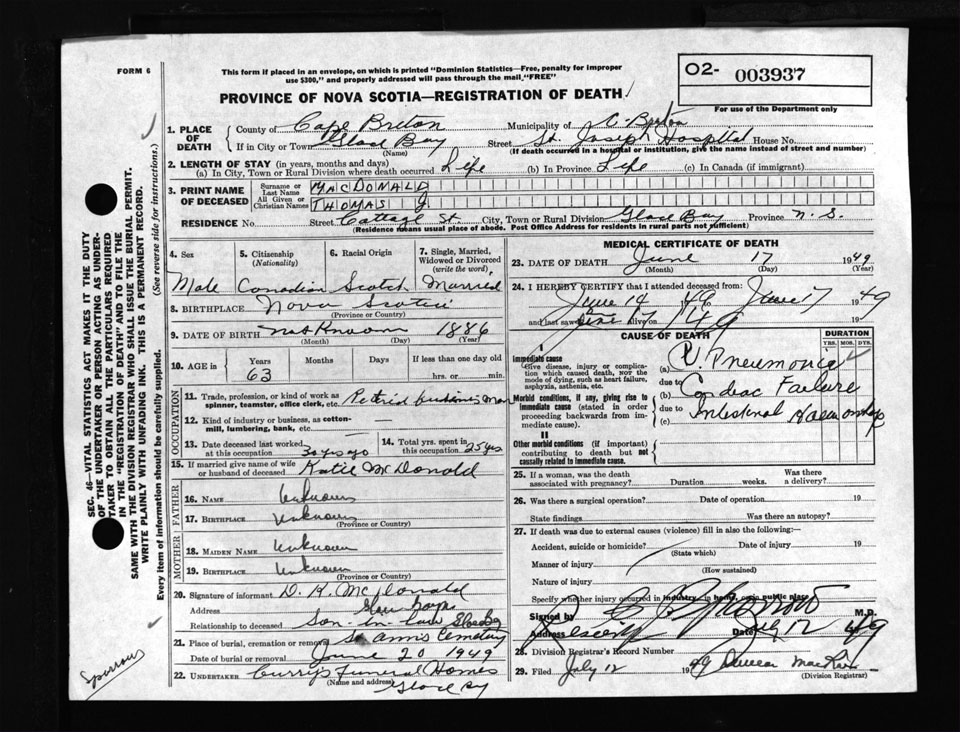 FORM 6
This form if placed in an envelope, on which is printed "Dominion Statistics—Free, penalty for improper
use $300," and properly addressed will pass through the mail "FREE"
PROVINCE OF NOVA SCOTIA—REGISTRATION OF DEATH
O2- 003937
For use of the Department only
1. PLACE OF DEATH
County of Cape Breton Municipality of C. Breton
If in City or Town Glace Bay Street St. Joseph Hospital House No.
(Name) (If death occurred in a hospital or institution, give the name instead of street and number)
2. LENGTH OF STAY (in years, months and days)
(a) In City, Town or Rural Division where death occurred Life (b) In Province Life (c) In Canada (if immigrant)
3. PRINT NAME OF DECEASED
Surname or Last Name MACDONALD
All Given or Christian Names THOMAS J.
RESIDENCE No. Street Cottage St. City, Town or Rural Division Glace Bay Province N. S.
(Residence means usual place of abode. Post Office Address for residents in rural parts not sufficient)
4. Sex Male
5. Citizenship (Nationality) Canadian
6. Racial Origin Scotch
7. Single, Married, Widowed or Divorced (write the word) Married
8. BIRTHPLACE Nova Scotia
(Province or Country)
9. DATE OF BIRTH not known 1886
(Month) (Day) (Year)
10. AGE in Years 63 Months Days If less than one day old
hrs. or min.
OCCUPATION
11. Trade, profession, or kind of work as spinner, teamster, office clerk, etc. Retired business man
12. Kind of industry or business, as cotten-mill, lumbering, bank, etc.
13. Date deceased last worked at this occupation 30 yrs ago
14. Total yrs. spent in this occupation 25 yrs
15. If married give name of wife or husband of deceased Katie McDonald
FATHER
16. NAME Unknown
17. BIRTHPLACE Unknown
(Province or Country)
MOTHER
18. MAIDEN NAME Unknown
19. BIRTHPLACE Unknown
(Province or Country)
20. Signature of informant D. R. McDonald
Address
Relationship to deceased Son-in-law Glace Bay
21. Place of burial, cremation or removal St Anns Cemetery
Date of burial or removal June 20 1949
22. UNDERTAKER Curry's Funeral Homes
(Name and address) Glace Bay
MEDICAL CERTIFICATE OF DEATH
23. DATE OF DEATH June 17 1949
(Month) (Day) (Year)
24. I HEREBY CERTIFY that I attended deceased from:
June 14 49 to June 17 1949
and last saw alive on June 17 1949
CAUSE OF DEATH
DURATION
YRS. MOS. DYS.
I
Immediate cause
Give disease, injury or complication which caused death, not the mode of dying, such as heart failure, asphyxia, asthenia, etc.
(a) V. Pneumonia
due to
Morbid conditions, if any, giving rise to immediate cause (stated in order proceeding backwards from immediate cause).
(b) Cardiac Failure
due to
(c) Intestinal
II
Other morbid conditions (if important) contributing to death but not causally related to immediate cause.
25. If a woman, was the death associated with pregnancy? Duration weeks. Was there a delivery?
26. Was there a surgical operation? Date of operation 19
State findings Was there an autopsy?
27. If death was due to external causes (violence) fill in also the following:—
Accident, suicide or homicide? Date of injury 19
(State which)
Manner of injury
(How sustained)
Nature of injury
Specify whether injury occurred in industry, in home, or in public place
Signed by M.D.
Address Date July 12 49
28. Division Registrar's Record Number
29. Filed July 12 1949 Duncan
(Division Registrar)
SEC. 46—VITAL STATISTICS ACT MAKES IT THE DUTY
OF THE UNDERTAKER OR PERSON ACTING AS UNDER-
TAKER TO OBTAIN ALL THE PARTICULARS REQUIRED
IN THE "REGISTRATION OF DEATH" AND TO FILE THE
SAME WITH THE DIVISION REGISTRAR WHO SHALL ISSUE THE BURIAL PERMIT.
WRITE PLAINLY WITH UNFADING INK. THIS IS A PERMANENT RECORD.
Every item of information should be carefully supplied. (See reverse side for instructions.)
Sparrow